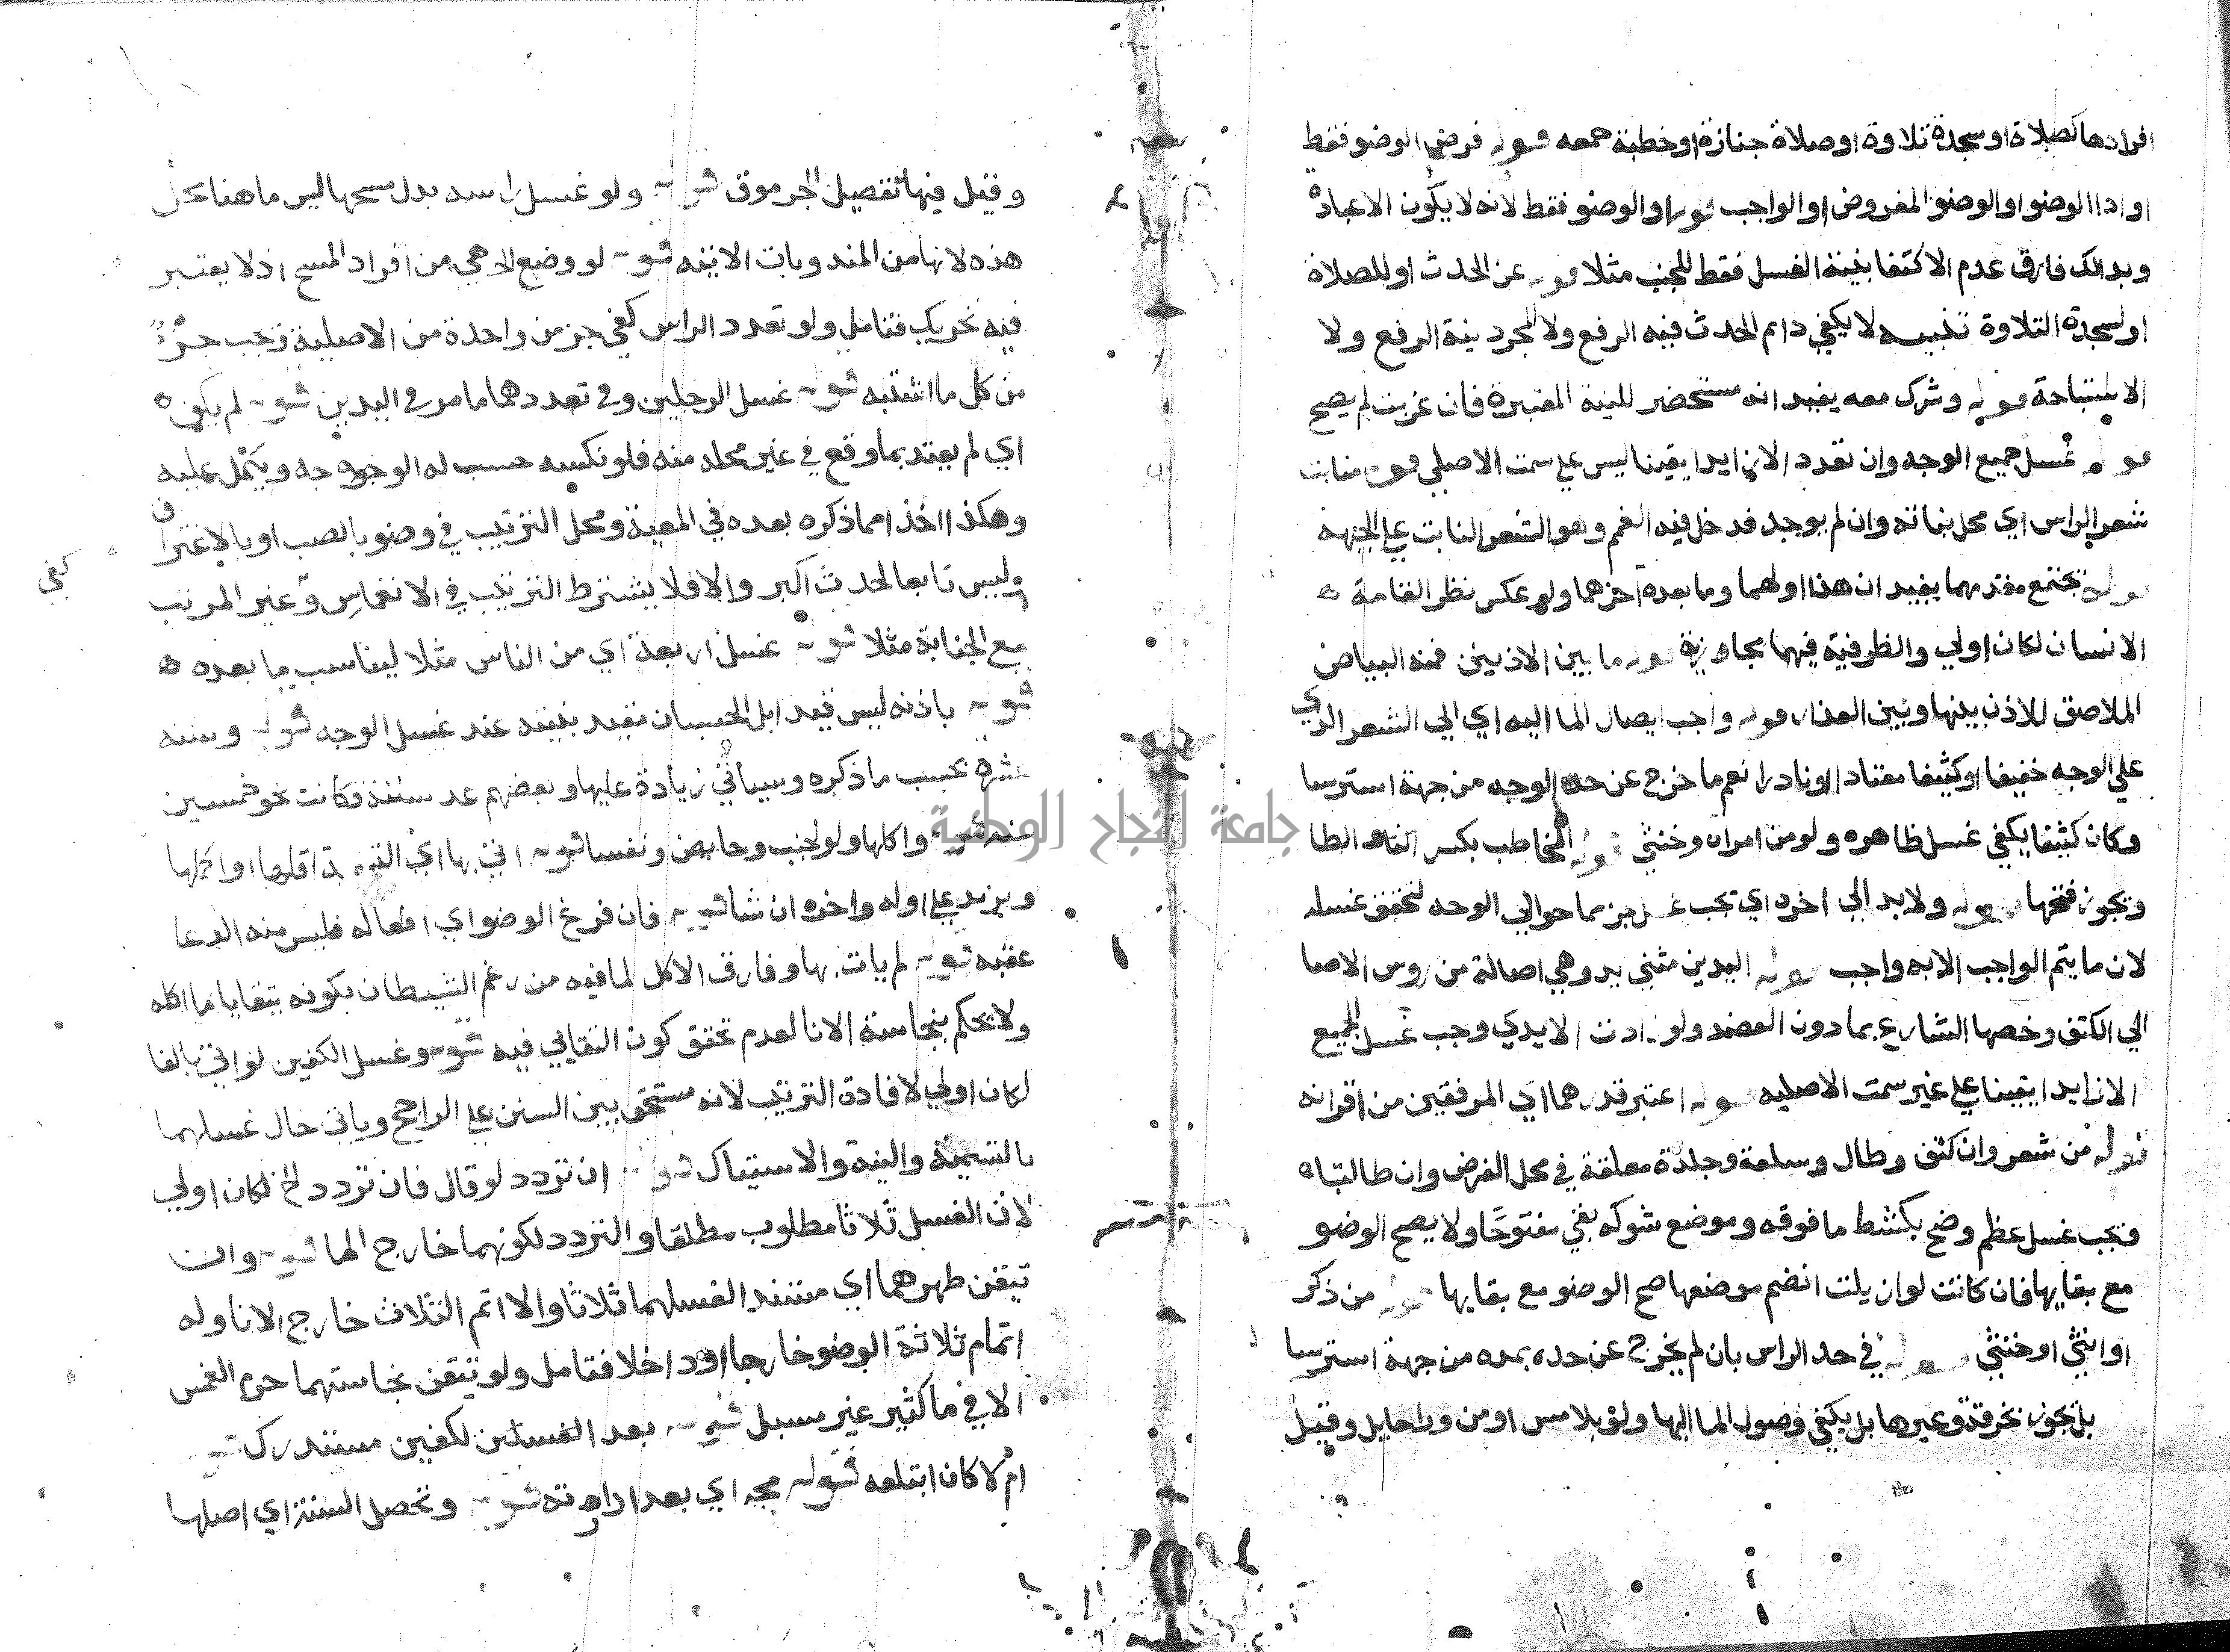 افرادها كصلاة او سجدة تلاوة او صلاة جنازة او خطبة جمعه قوله فرض الوضو فقط
او اداالوضو او الوضو المفروض او الواجب قوله او الوضو فقط لانه لا يكون الا عبادة
وبذلك فارق عدم الاكتفا بنية الغسل فقط للجنب مثلا قوله عن الحدث او للصلاة
او لسجدة التلاوة تنبيه لا يكفي دايم الحدث فيه الرفع ولا لمجرد نية الرفع ولا
الاستباحة قوله وشرك معه يفيد انه مستحضر للنية المعتبرة فان عزبت لم يصح
قوله غسل جميع الوجه وان تعدد الا زايدا يقينا ليس على سمت الاصلي قوله منابت
شعر الراس اي محل نباته وان لم يوجد فدخل فيه الغمم وهو الشعر النابت علي الجبهة
قوله تحتمع مقدمهما يفيد ان هذا اولهما وما بعده آخرهما ولو عكس نظر القامة
الانسان لكان اولي والظرفية فيهما مجازية قوله ما بين الاذنين فمنه البياض
الملاصق للاذن بينها وبين العذار قوله واجب ايصال الما اليه اي الي الشعر الذي
علي الوجه خفيفا او كثيفا معتادا او نادرا نعم ما خرج عن حد الوجه من جهة استرسا
وكان كثيفا يكفي غسل ظاهره ولو من امراة وخنثي قوله المخاطب بكسر الطا
ويجوز فتحها قوله ولا بد الي اخره اي تجب غسل جز مما حوالي الوجه لتحقق غسله
لان ما يتم الواجب الا به واجب قوله اليدين مثني يد وهي اصالة من روس الاصا
الي الكتف وخصها الشارع بما دون العضد ولو زادت الايدي وجب غسل الجميع
الا زايدا يقينا علي غير سمت الاصليه قوله اعتبر قدرهما اي المرفقين من اقرانه
قوله من شعر وان كثف وطال وسلعة وجلدة معلقة في محل الفرض وان طالتا
وتجب غسل عظم وضح بكشط ما فوقه وموضع شوكه بقي مفتوحا ولا يصح الوضو
مع بقايها فان كانت لو ازيلت انضم موضعها صح الوضو مع بقايها قوله من ذكر
او انثي او خنثي قوله في حد الراس بان لم يخرج عن حده بمده من جهة استرسا
بل يجوز بخرقة وغيرها بل يكفي وصول الما اليها ولو بلا مس او من ورا حايل وقيل
وقيل فيها تفصيل الجرموق قوله ولو غسل راسه بدل مسحها ليس ما هنا محل
هذه لانها من المندوبات الاتيه قوله لو وضع الخ هي من افراد المسح اذ لا يعتبر
فيه تحريك فتامل ولو تعدد الراس كفي جز من واحدة من الاصلية وتجب جزء
من كل ما اشتبه قوله غسل الرجلين وفي تعددهما ما مر في اليدين قوله لم يكف
اي لم يعتد بما وقع في غير محله منه فلو نكسه حسب له الوجه ويكمل عليه
وهكذا اخذا مما ذكره بعده في المعية ومحل الترتيب في وضو بالصب او بالاغتراف
وليس تابعا لحدث اكبر والا فلا يشترط الترتيب في الانغماس وغير المرتب
كفي
مع الجنابة مثلا قوله غسل اربعة اي من الناس مثلا ليناسب ما بعده
قوله باذنه ليس قيدا بل الحسبان مقيد بنيته عند غسل الوجه قوله وسننه
عشرة بحسب ما ذكره وسياتي زيادة عليها وبعضهم عد سننه فكانت نحو خمسين
سنة قوله واكلها ولو لجنب وحايض ونفسا قوله اتي بها اي التسمية اقلها او اكملها
ويزيد علي اوله واخره ان شا قوله فان فرغ الوضو اي افعاله فليس منه الدعا
عقبه قوله لم يات بها وفارق الاكل لما فيه من رغم الشيطان بكونه يتقايا ما اكله
ولا يحكم بنجاسة الانا لعدم تحقق كون التقايي فيه قوله وغسل الكفين لو اتي بالفا
لكان اولي لافادة الترتيب لانه مستحق بين السنن علي الراجح وياتي حال غسلهما
بالتسمية والنية والاستياك قوله ان تردد لو قال فان تردد الخ لكان اولي
لان الغسل ثلاثا مطلوب مطلقا والتردد لكونهما خارج الما قوله وان
تيقن طهرهما اي مستند الغسلهما ثلاثا والا اتم الثلاث خارج الانا وله
اتمام ثلاثة الوضو خارجا او داخلا فتامل ولو تيقن نجاستهما حرم الغمس
الا في ما كثير غير مسبل قوله بعد الغسل للكفين مستدرك قوله
ام لا كان ابتلعه قوله مجه اي بعد ادارته قوله وتحصل السنة اي اصلها
جامعة النجاح الوطنية